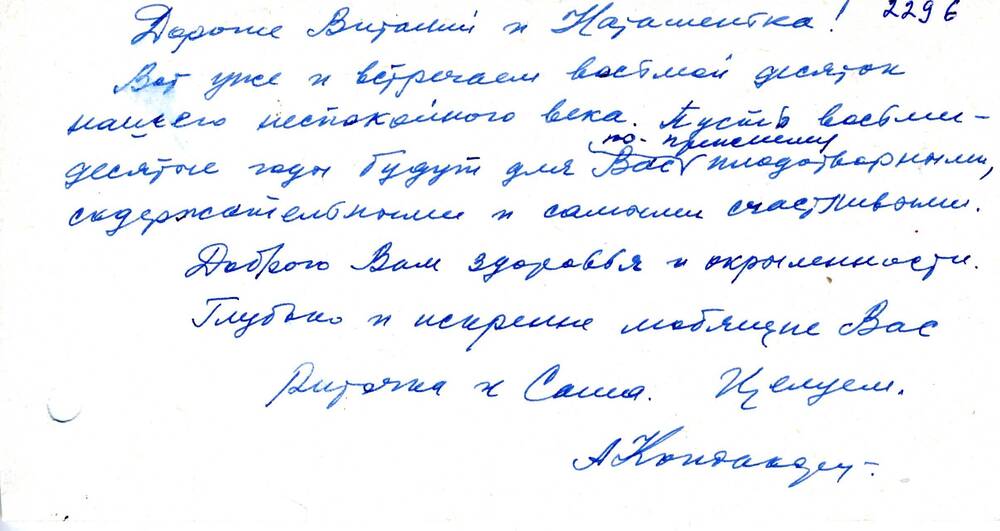 Дорогие Виталий и Наташенька! 229 б
Вот уже и встречаем восьмой десяток
нашего неспокойного века. Пусть восьми-
по-прежнему
десятые годы будут для Вас плодотворными,
содержательными и самыми счастливыми.
Доброго Вам здоровья и окрыленности.
Глубоко и искренне любящие Вас
Риточка и Саша. Целуем.